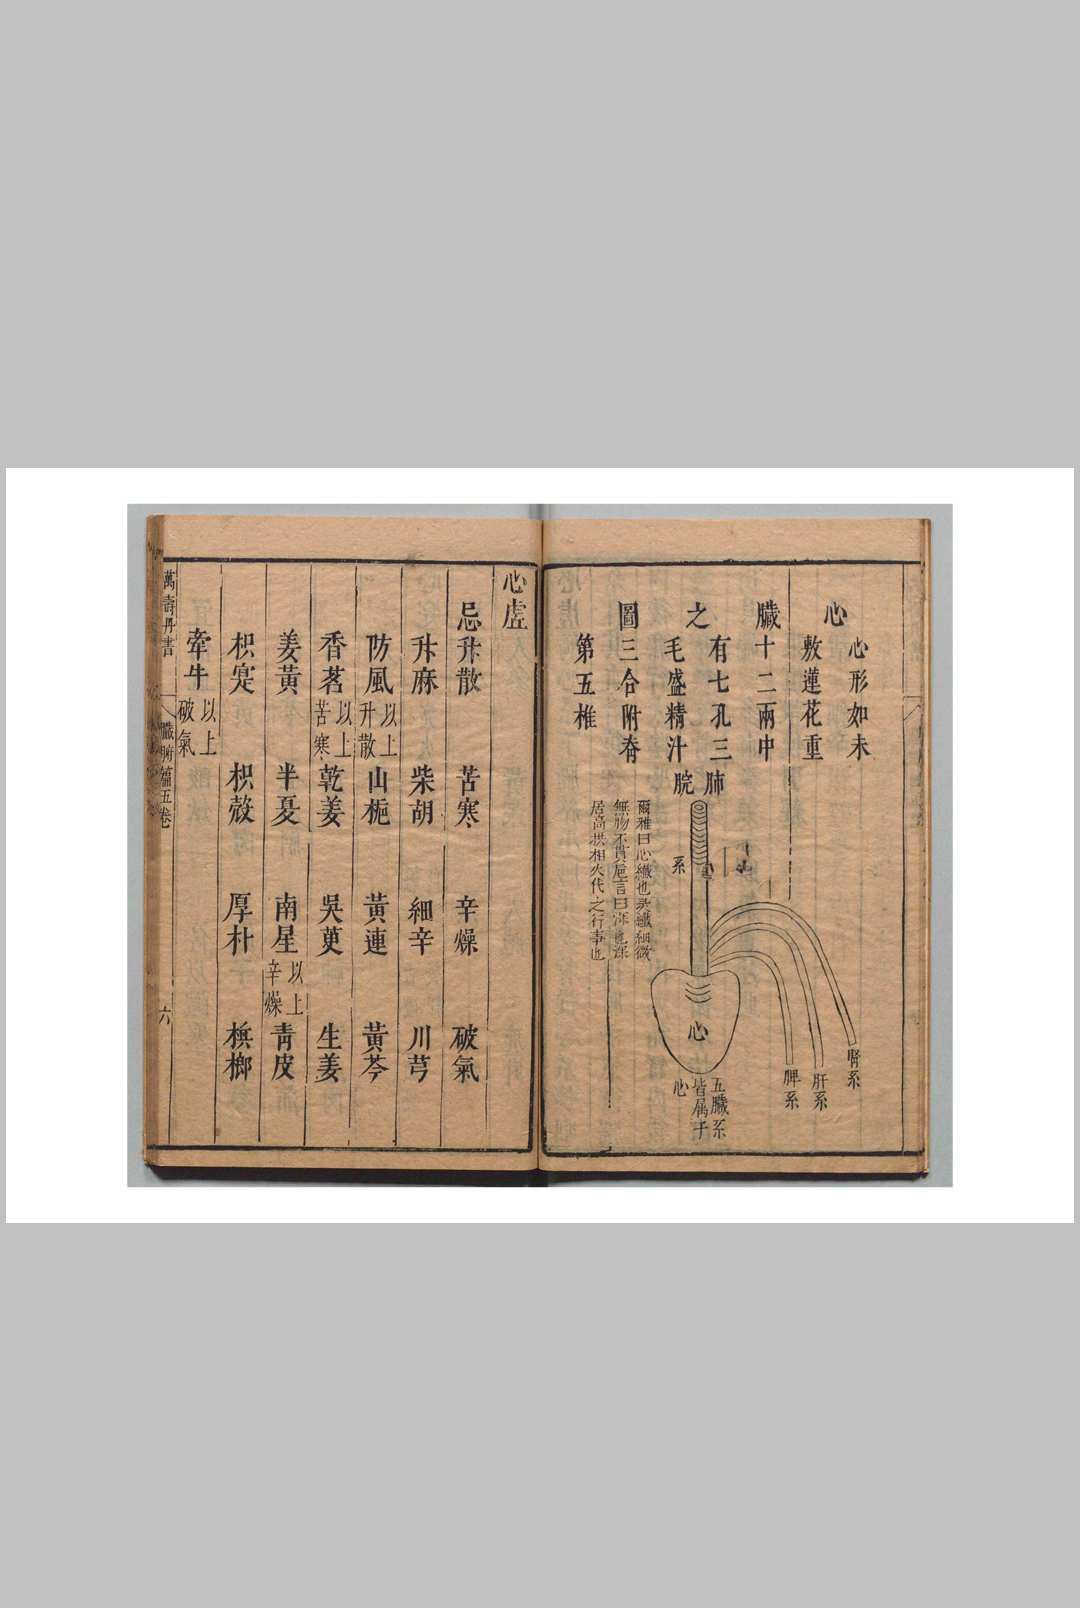 心臟之圖
心形如未
敷蓮花重
十二兩中
有七孔三
毛盛精汁
三合附脊
第五椎
肺脘
系
爾雅曰心纖也
無物不貫
居高拱相火代之行事也
心
五臟系
皆屬于
心
腎系
肝系
脾系
心虛
忌升散 苦寒 辛燥 破氣
升麻 柴胡 細辛 川芎
防風 以上升散 山梔 黃連 黃芩
香茗 以上苦寒 乾姜 吳萸 生姜
姜黃 半夏 南星 以上辛燥 青皮
枳寔 枳殼 厚朴 檳榔
牽牛 以上破氣
萬壽丹書 臟腑篇五卷 六